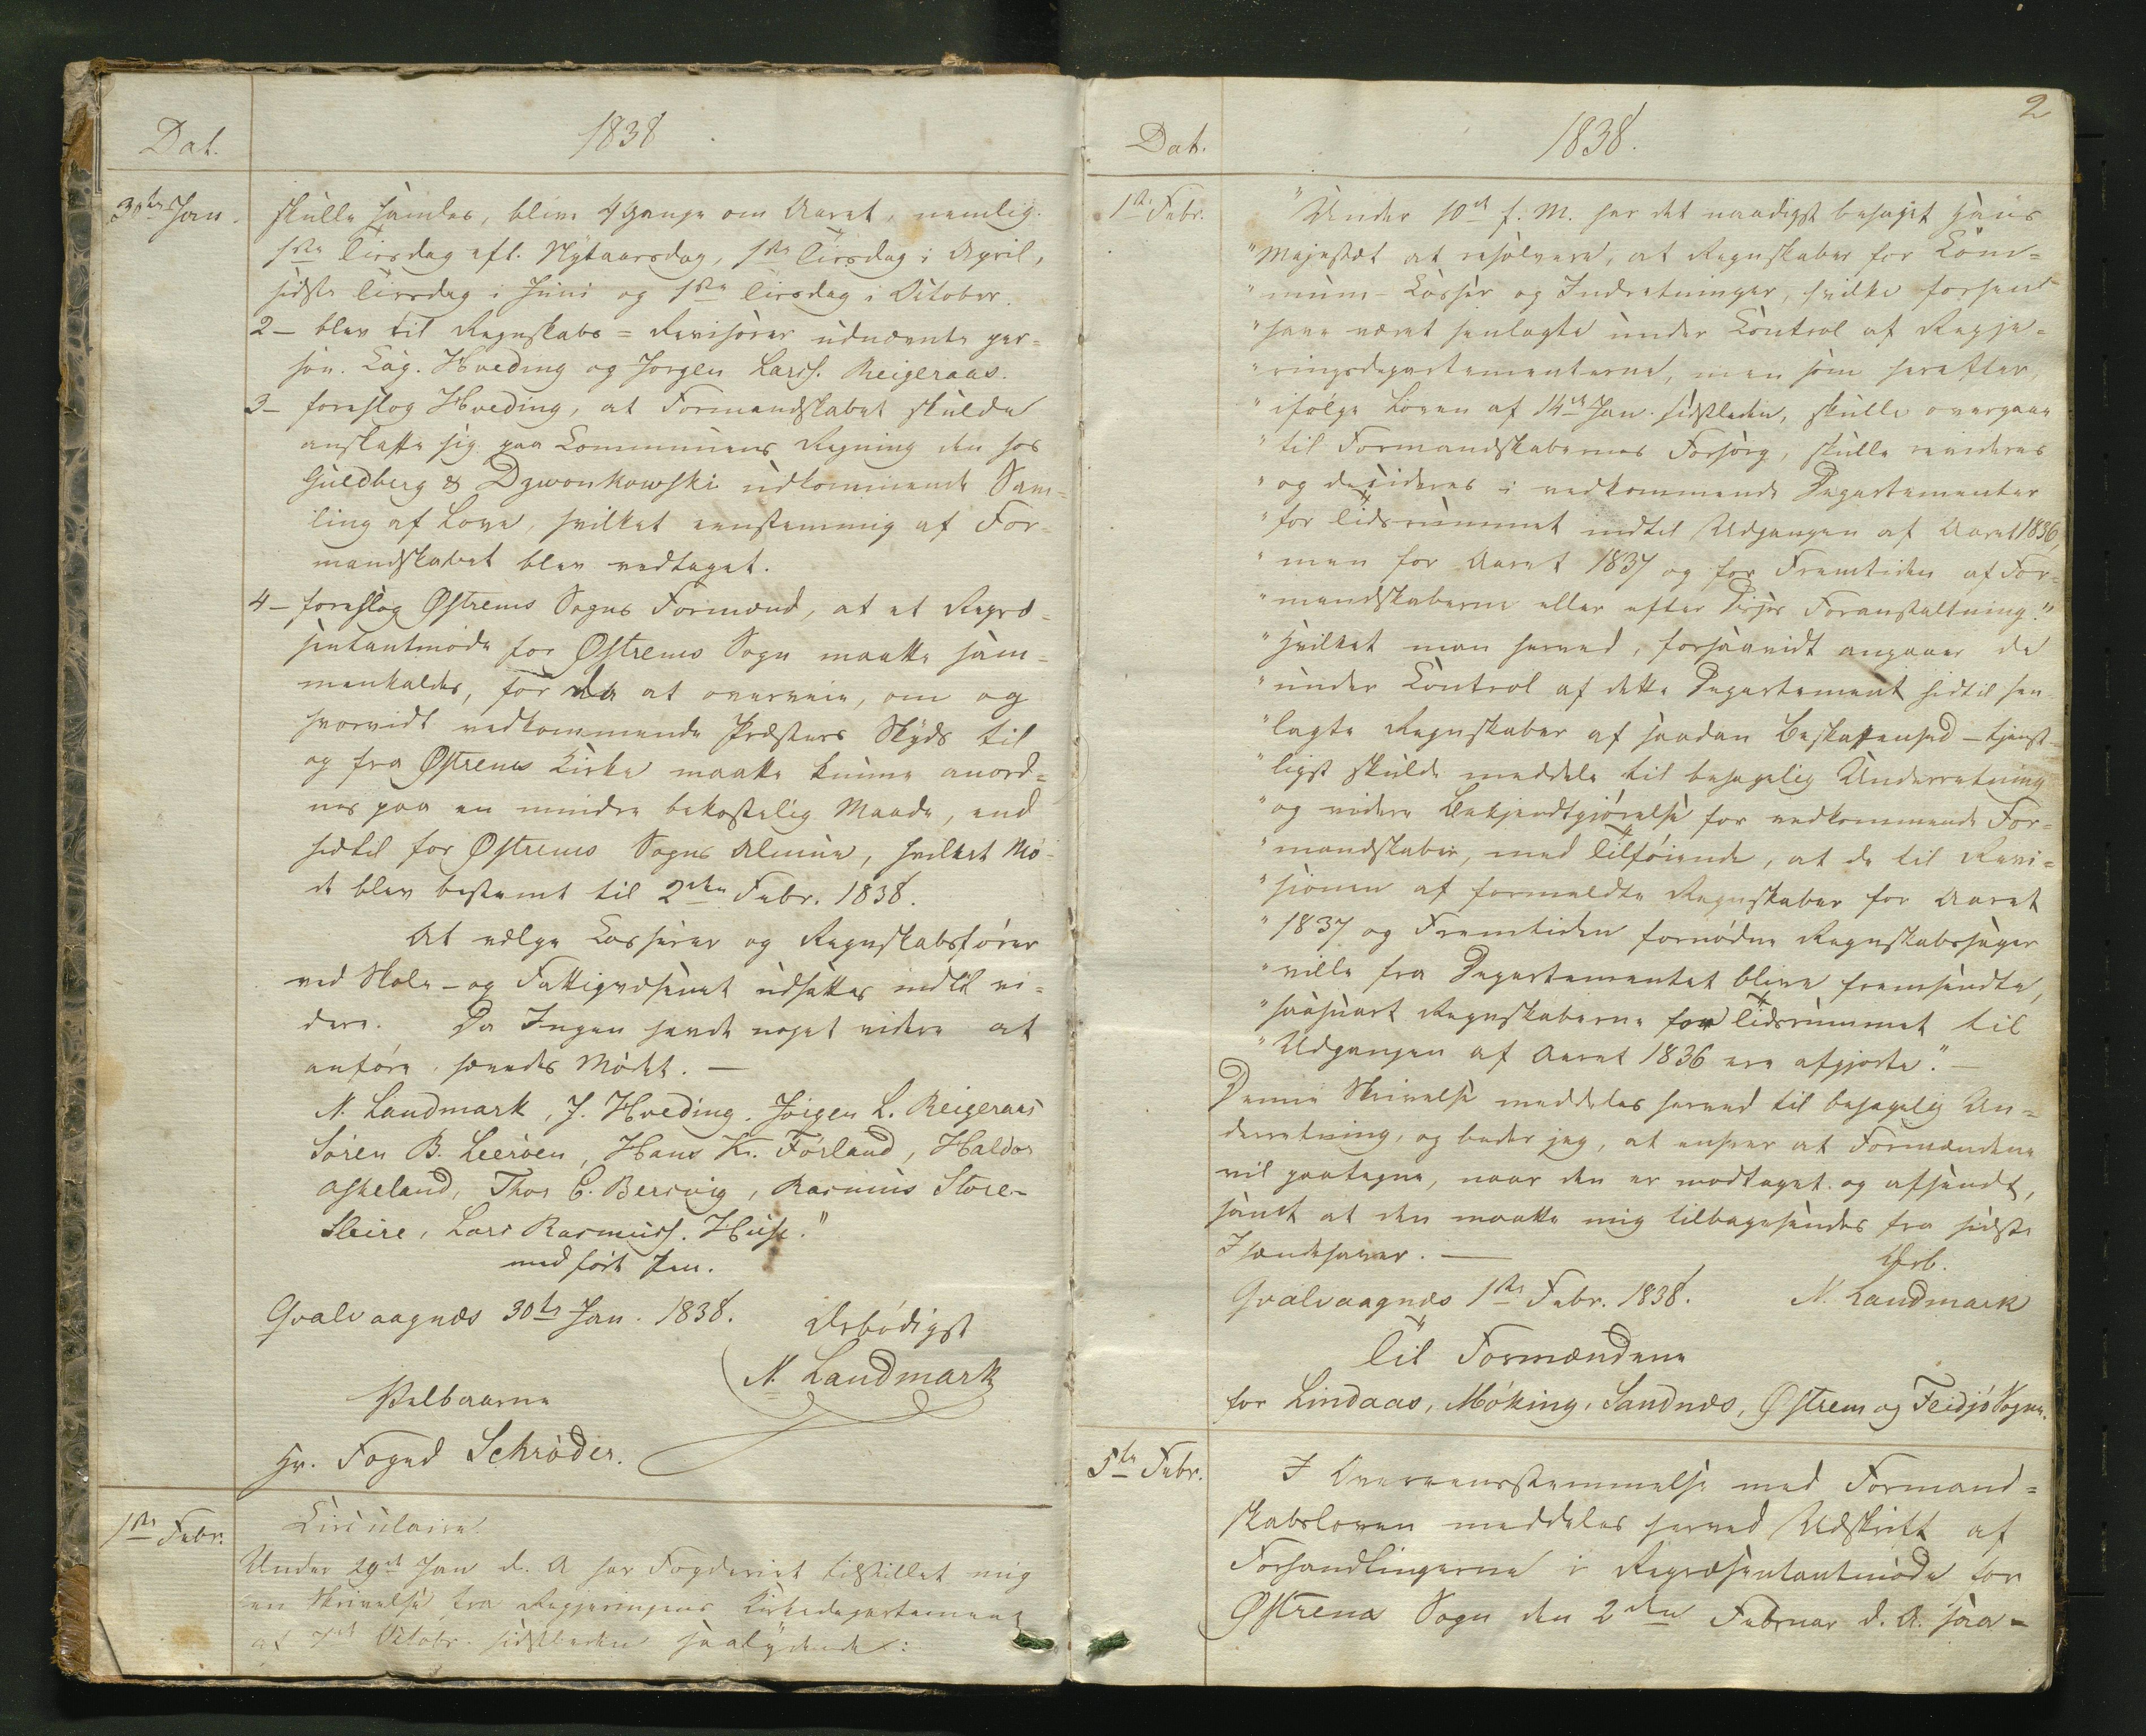 Dat.
1838
30te Jan.
skulle samles, blive 4 Gange om Aaret, nemlig:
1ste Tirsdag eft. Nytaarsdag, 1ste Tirsdag i April,
sidste Tirsdag i Juni og 1ste Tirsdag i October.
2 – blev til Regnskabs=Revisorer udnævnte per=
son. Cap. Hveding og Jørgen Larss. Reigeraas.
3 – foreslog Hveding, at Formandskabet skulde
anskaffe sig paa Communens Regning den hos
Guldberg & Dzwonkowski udkommende Sam=
ling af Love, hvilket eenstemmig af For=
mandskabet blev vedtaget.
4 – foreslog Østrems Sogns Formænd, at et Repræ=
sentantmøde for Østrems Sogn maatte sam=
menkaldes, for da at overveie, om og
hvorvidt vedkommende Præsters Skyds til
og fra Østrems Kirke maatte kunne anord=
nes paa en mindre bekostelig Maade, end
hidtil for Østrems Sogns Almue, hvilket Mø=
de blev bestemt til 2den Febr. 1838.
At vælge Casserer og Regnskabsfører
ved Skole- og Fattigvæsenet udsættes indtil vi=
dere. Da Ingen havde noget videre at
anføre, hævedes Mødet. –
N. Landmark, J. Hveding, Jørgen L. Reigeraas
Søren B. Leerøen, Hans Kr. Førland, Haldor
Askeland, Thor C. Bersvig, Rasmus Store-
Sleire, Lars Rasmuss. Huse."
med ført Pen.
Qvalvaagnæs 30te Jan. 1838.
Ærbødigst
N. Landmark
Velbaarne
Hr. Foged Schrøder.
1ste Febr.
Circulaire
Under 29de Jan d. A har Fogderiet tilstillet mig
en Skrivelse fra Regjeringens Kirkedepartement
af 7de Octobr. sidstleden saalydende:
Dat.
1838.
2
1ste Febr.
"Under 10de f. M. har det naadigst behaget Hans
"Majestæt at resolvere, at Regnskaber for Com=
"mune-Casser og Indretninger, hvilke forhen
"have været henlagte under Control af Regje=
"ringsdepartementerne, men som herefter,
"ifølge Loven af 14de Jan. sidstleden, skulle overgaae
"til Formandskabernes Forsorg, skulle revideres
"og decideres i vedkommende Departementer
"for Tidsrummet indtil Udgangen af Aaret 1836,
"men for Aaret 1837 og for Fremtiden af For=
"mandskaberne eller efter Disses Foranstaltning."
"Hvilket man herved, forsaavidt angaaer de
"under Control af dette Departement hidtil hen
"lagte Regnskaber af saadan Beskaffenhed – tjenst=
"ligst skulde meddele til behagelig Underretning
"og videre Bekjendtgjørelse for vedkommende For=
"mandskaber, med Tilføiende, at de til Revi=
"sionen af formeldte Regnskaber for Aaret
"1837 og Fremtiden fornødne Regnskabssager
"ville fra Departementet blive fremsendte,
"saasnart Regnskaberne for Tidsrummet til
"Udgangen af Aaret 1836 ere afgjorte." –
Denne Skrivelse meddeles herved til behagelig Un=
derretning, og beder jeg, at enhver at Formændene
vil paategne, naar den er modtaget og afsendt,
samt at den maatte mig tilbagesendes fra sidste
Ihændehaver. –
Ærb.
Qvalvaagnæs 1ste Febr. 1838.
N. Landmark
Til Formændene
for Lindaas, Møking, Sandnæs, Østrem og Feidjø Sogne.
5te Febr.
I Overeensstemmelse med Formand=
skabsloven meddeles herved Udskrift af
Forhandlingerne i Repræsentantmøde for
Østrems Sogn den 2den Februar d. A. saa-